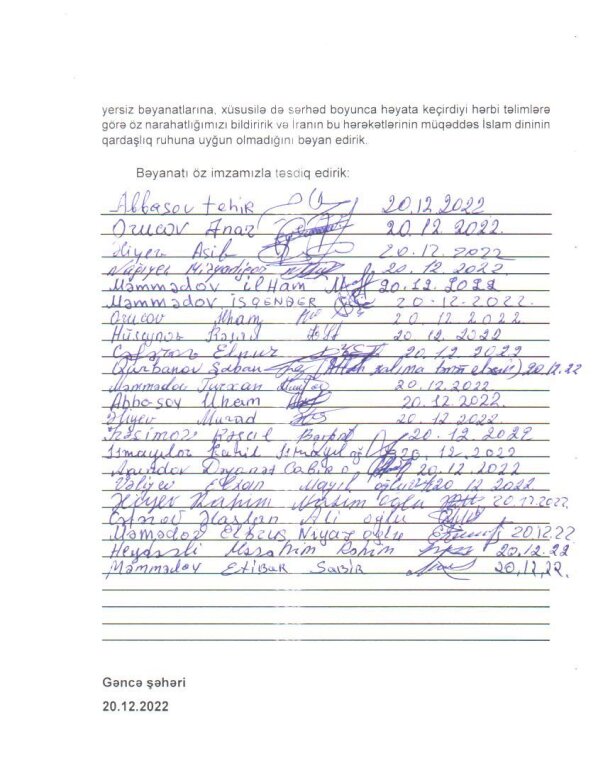 yersiz bəyanatlarına, xüsusilə də sərhəd boyunca həyata keçirdiyi hərbi təlimlərə
görə öz narahatlığımızı bildiririk və İranın bu hərəkətlərinin müqəddəs İslam dininin
qardaşlıq ruhuna uyğun olmadığını bəyan edirik.
Bəyanatı öz imzamızla təsdiq edirik:
Abbasov Tehir 20.12.2022
Orucov Anar 20.12.2022.
Əliyev Asif 20.12.2022
20.12.2022.
Məmmədov İlham 20.12.2022
Məmmədov, İSGƏNDƏR 20-12-2022.
Orucov İlham 20.12.2022.
Hüseynov 20.12.2022
Elnur 20.12.2022
Qurbanov Şaban (Allah zalıma etsin) 20.12.22
Məmmədov Turxan 20.12.2022
Abbasov İlham 20.12.2022.
Əliyev Murad 20.12.2022
Qasimov 20.12.2022
İsmayılov 20.12.2022
Cabir 20.12.2022
Vəliyev Elxan Mayıl oğlu 20 12 2022
Rahim oğlu 20.12.2022.
Aslan Ali oğlu
Məmmədov Elbrus Niyaz oğlu 20.12.22
Heydərli Rəhim 20.12.22
Məmmədov Etibar Sabir 20,12,22.
Gəncə şəhəri
20.12.2022